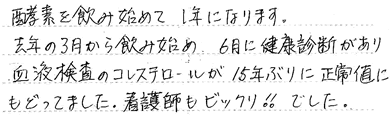 酵素を飲み始めて 1年になります。
去年の3月から飲み始め 6月に健康診断があり
血液検査のコレステロールが 15年ぶりに正常値に
もどってました。看護師もビックリ!! でした。